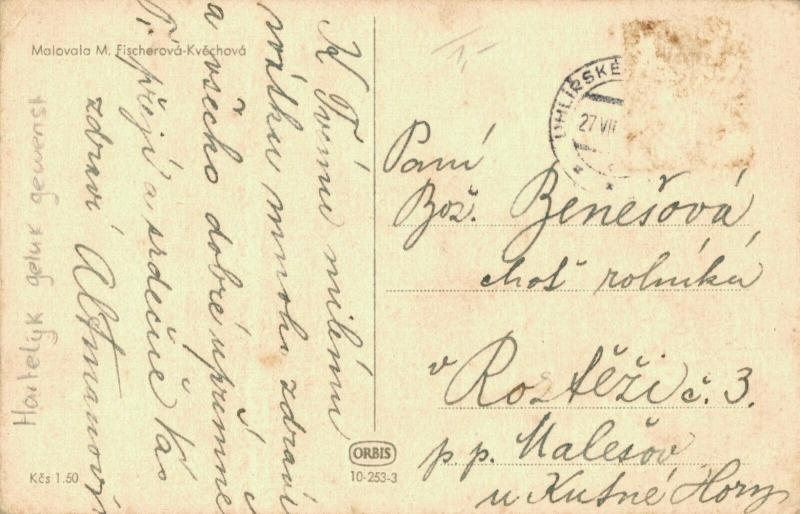 Malovala M. Fischerová-Kvěchová
K Tvému milému
svátku mnoho zdraví
a všecko dobré upřímně
Ti přejí a srdečně Vás
zdraví Altmanovi
Hartelijk geluk gewenst
UHLÍŘSKÉ
27 VII
Paní
Bož. Benešová
choť rolníka
v Roztěži č. 3.
p. p. Malešov
u Kutné Hory
Kčs 1.50
ORBIS
10-253-3